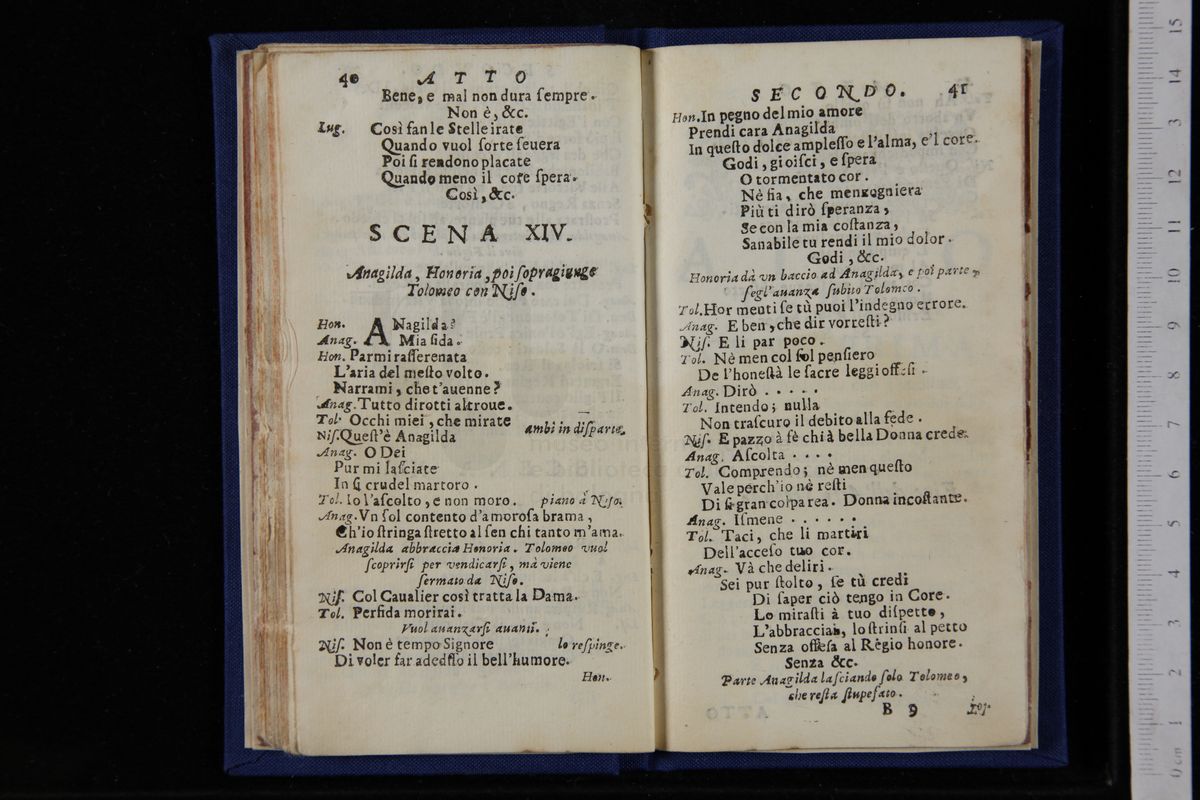 40 ATTO
Bene, e mal non dura ſempre.
Non è, &c.
Iug. Così fan le Stelle irate
Quando vuol ſorte ſeuera
Poi ſi rendono placate
Quando meno il core ſpera.
Così, &c.
SCENA XIV.
Anagilda, Honoria, poi ſopragiunge
Tolomeo con Niſo.
Hon. ANagilda?
Anag. Mia fida.
Hon. Parmi raſſerenata
L'aria del meſto volto.
Narrami, che t'auenne?
Anag. Tutto dirotti altroue.
Tol. Occhi miei, che mirate
Niſ. Queſt'è Anagilda ambi in diſparte.
Anag. O Dei
Pur mi laſciate
In ſì crudel martoro.
Tol. Io l'aſcolto, e non moro. piano à Niſo.
Anag. Vn ſol contento d'amoroſa brama,
Ch'io ſtringa ſtretto al ſen chi tanto m'ama.
Anagilda abbraccia Honoria. Tolomeo vuol
ſcoprirſi per vendicarſi, mà viene
fermato da Niſo.
Niſ. Col Caualier così tratta la Dama.
Tol. Perfida morirai.
Vuol auanzarſi auanti.
Niſ. Non è tempo Signore lo reſpinge.
Di voler far adeſſo il bell'humore.
Hon.
SECONDO. 41
Hon. In pegno del mio amore
Prendi cara Anagilda
In queſto dolce ampleſſo e l'alma, e'l core.
Godi, gioiſci, e ſpera
O tormentato cor.
Nè fia, che menzogniera
Più ti dirò ſperanza,
Se con la mia coſtanza,
Sanabile tu rendi il mio dolor.
Godi, &c.
Honoria dà vn baccio ad Anagilda, e poi parte,
ſegl'auanza ſubito Tolomeo.
Tol. Hor menti ſe tù puoi l'indegno errore.
Anag. E ben, che dir vorreſti?
Niſ. E li par poco.
Tol. Nè men col ſol penſiero
De l'honeſtà le ſacre leggi offeſi.
Anag. Dirò . . . .
Tol. Intendo; nulla
Non traſcuro il debito alla fede.
Niſ. E pazzo à fè chi à bella Donna crede.
Anag. Aſcolta . . . .
Tol. Comprendo; nè men queſto
Vale perch'io nè reſti
Di ſi gran colpa rea. Donna incoſtante.
Anag. Iſmene . . . . . .
Tol. Taci, che li martiri
Dell'acceſo tuo cor.
Anag. Và che deliri.
Sei pur ſtolto, ſe tù credi
Di ſaper ciò tengo in Core.
Lo miraſti à tuo diſpetto,
L'abbracciai, lo ſtrinſi al petto
Senza offeſa al Règio honore.
Senza &c.
Parte Anagilda laſciando ſolo Tolomeo,
che reſta ſtupefato.
B 9 Tol.